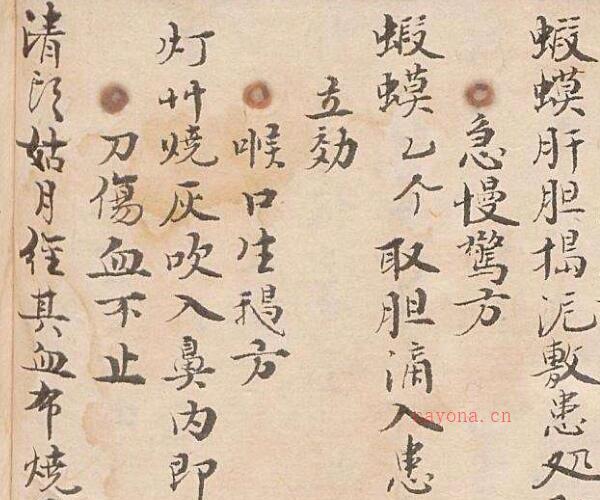 蝦蟆肝胆搗泥敷患处
急慢驚方
蝦蟆乙个取胆滴入患
立効
喉口生鵝方
灯艸燒灰吹入鼻内即
刀傷血不止
清江姑月經其血布燒
nayona.cn